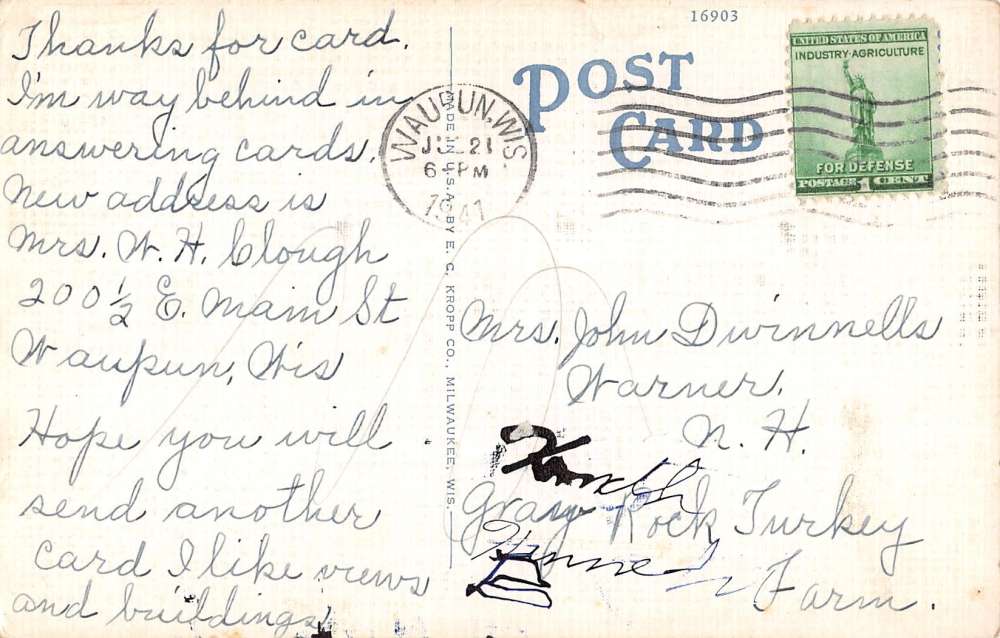 Thanks for card.
I'm way behind in
answering cards.
New address is
Mrs. W. H. Clough
200½ E. Main St
Waupun, Wis
Hope you will
send another
card I like views
and buildings
MADE IN U.S.A. BY E. C. KROPP CO., MILWAUKEE, WIS.
16903
POST
CARD
WAUPUN, WIS
21
6 PM
1941
UNITED STATES OF AMERICA
INDUSTRY·AGRICULTURE
FOR DEFENSE
POSTAGE 1 CENT
Mrs. John Dwinnells
Warner,
N. H.
Gray Rock Turkey
Farm.